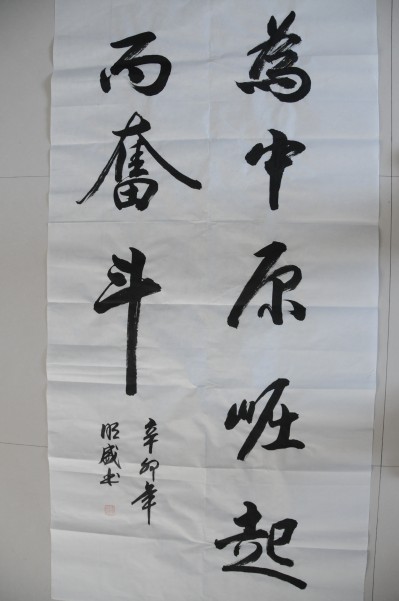 為中原崛起
而奮斗
辛卯年
明盛书